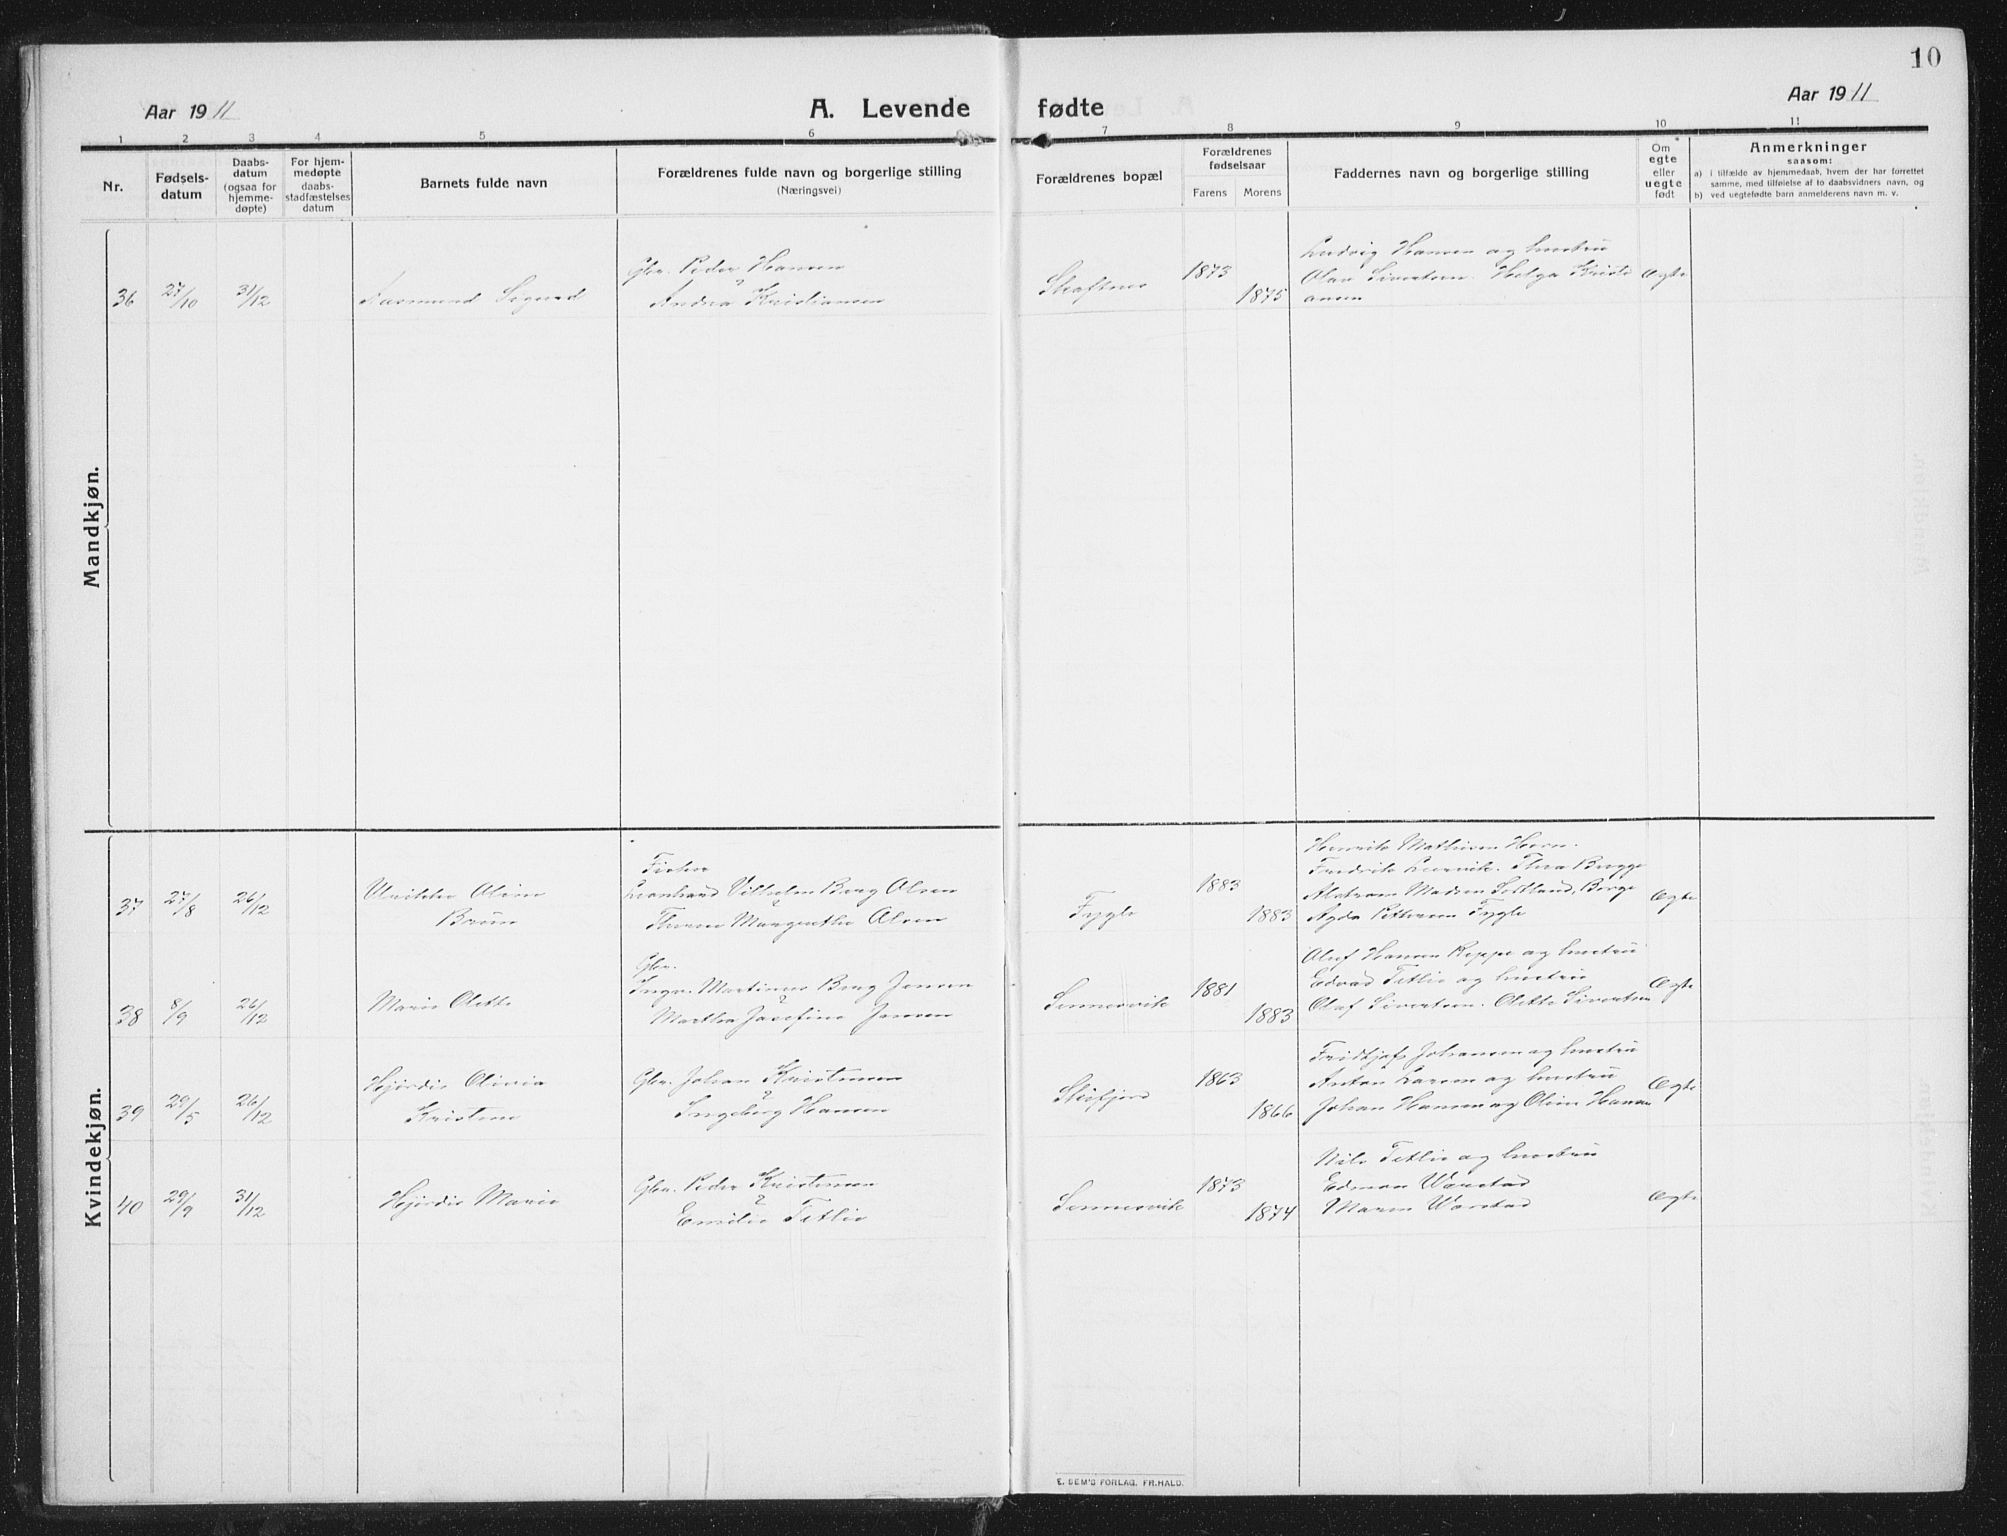 10
Aar 1911
A. Levende fødte
Aar 1911
1 2 3 4 5 6 7 8 9 10 11
Nr.
Fødsels-
datum
Daabs-
datum
(ogsaa for
hjemme-
døpte)
For hjem-
medøpte
daabs-
stadfæstelses
datum
Barnets fulde navn
Forældrenes fulde navn og borgerlige stilling
(Næringsvei)
Forældrenes bopæl
Forældrenes
fødselsaar
Farens Morens
Faddernes navn og borgerlige stilling
Om
egte
eller
uegte
født
Anmerkninger
saasom:
a) i tilfælde av hjemmedaab, hvem der har forrettet
samme, med tilføielse af to daabsvidners navn, og
b) ved uegtefødte barn anmelderens navn m. v.
Mandkjøn.
36 27/10 31/12
Aasmund Sigurd
Gbr. Peder Hansen
Andrea Kristiansen
Skaftnes
1873
1875
Ludvig Hansen og hustru
Olav Sivertsen. Helga Kristi
ansen
Ægte
Kvindekjøn.
37 27/8 26/12
Ulrikke Oline
Brun
Fisker
Leonhard Vilhelm Berg Olsen
Margrethe Olsen
Fygle
1883
1883
Henrik Mathisen Horn.
Fredrik Leirvik. Thea Brygge
Madsen Sortland, Borge
Agda Pettersen Fygle
Ægte
38 8/9 26/12
Marie Olette
Gbr.
Ingv. Martinus Berg Jensen
Martha Josefine Jensen
Sennesvik
1881
1883
Oluf Hansen Reppe og hustru
Edvard Tetlie og hustru
Olaf Sivertsen. Olette Sivertsen
Ægte
39 29/5 26/12
Hjørdis Olivia
Kristine
Gbr. Johan Kristensen
Ingeborg Hansen
Skifjord
1863
1866
Fridtjof Johansen og hustru
Anton Larsen og hustru
Johan Hansen og Oline Hansen
Ægte
40 29/9 31/12
Hjørdis Marie
Gbr. Peder Kristensen
Emilie Tetlie
Sennesvik
1873
1874
Nils Tetlie og hustru
Edman Warstad
Maren Warstad
Ægte
E. SEM'S FORLAG. FR.HALD.